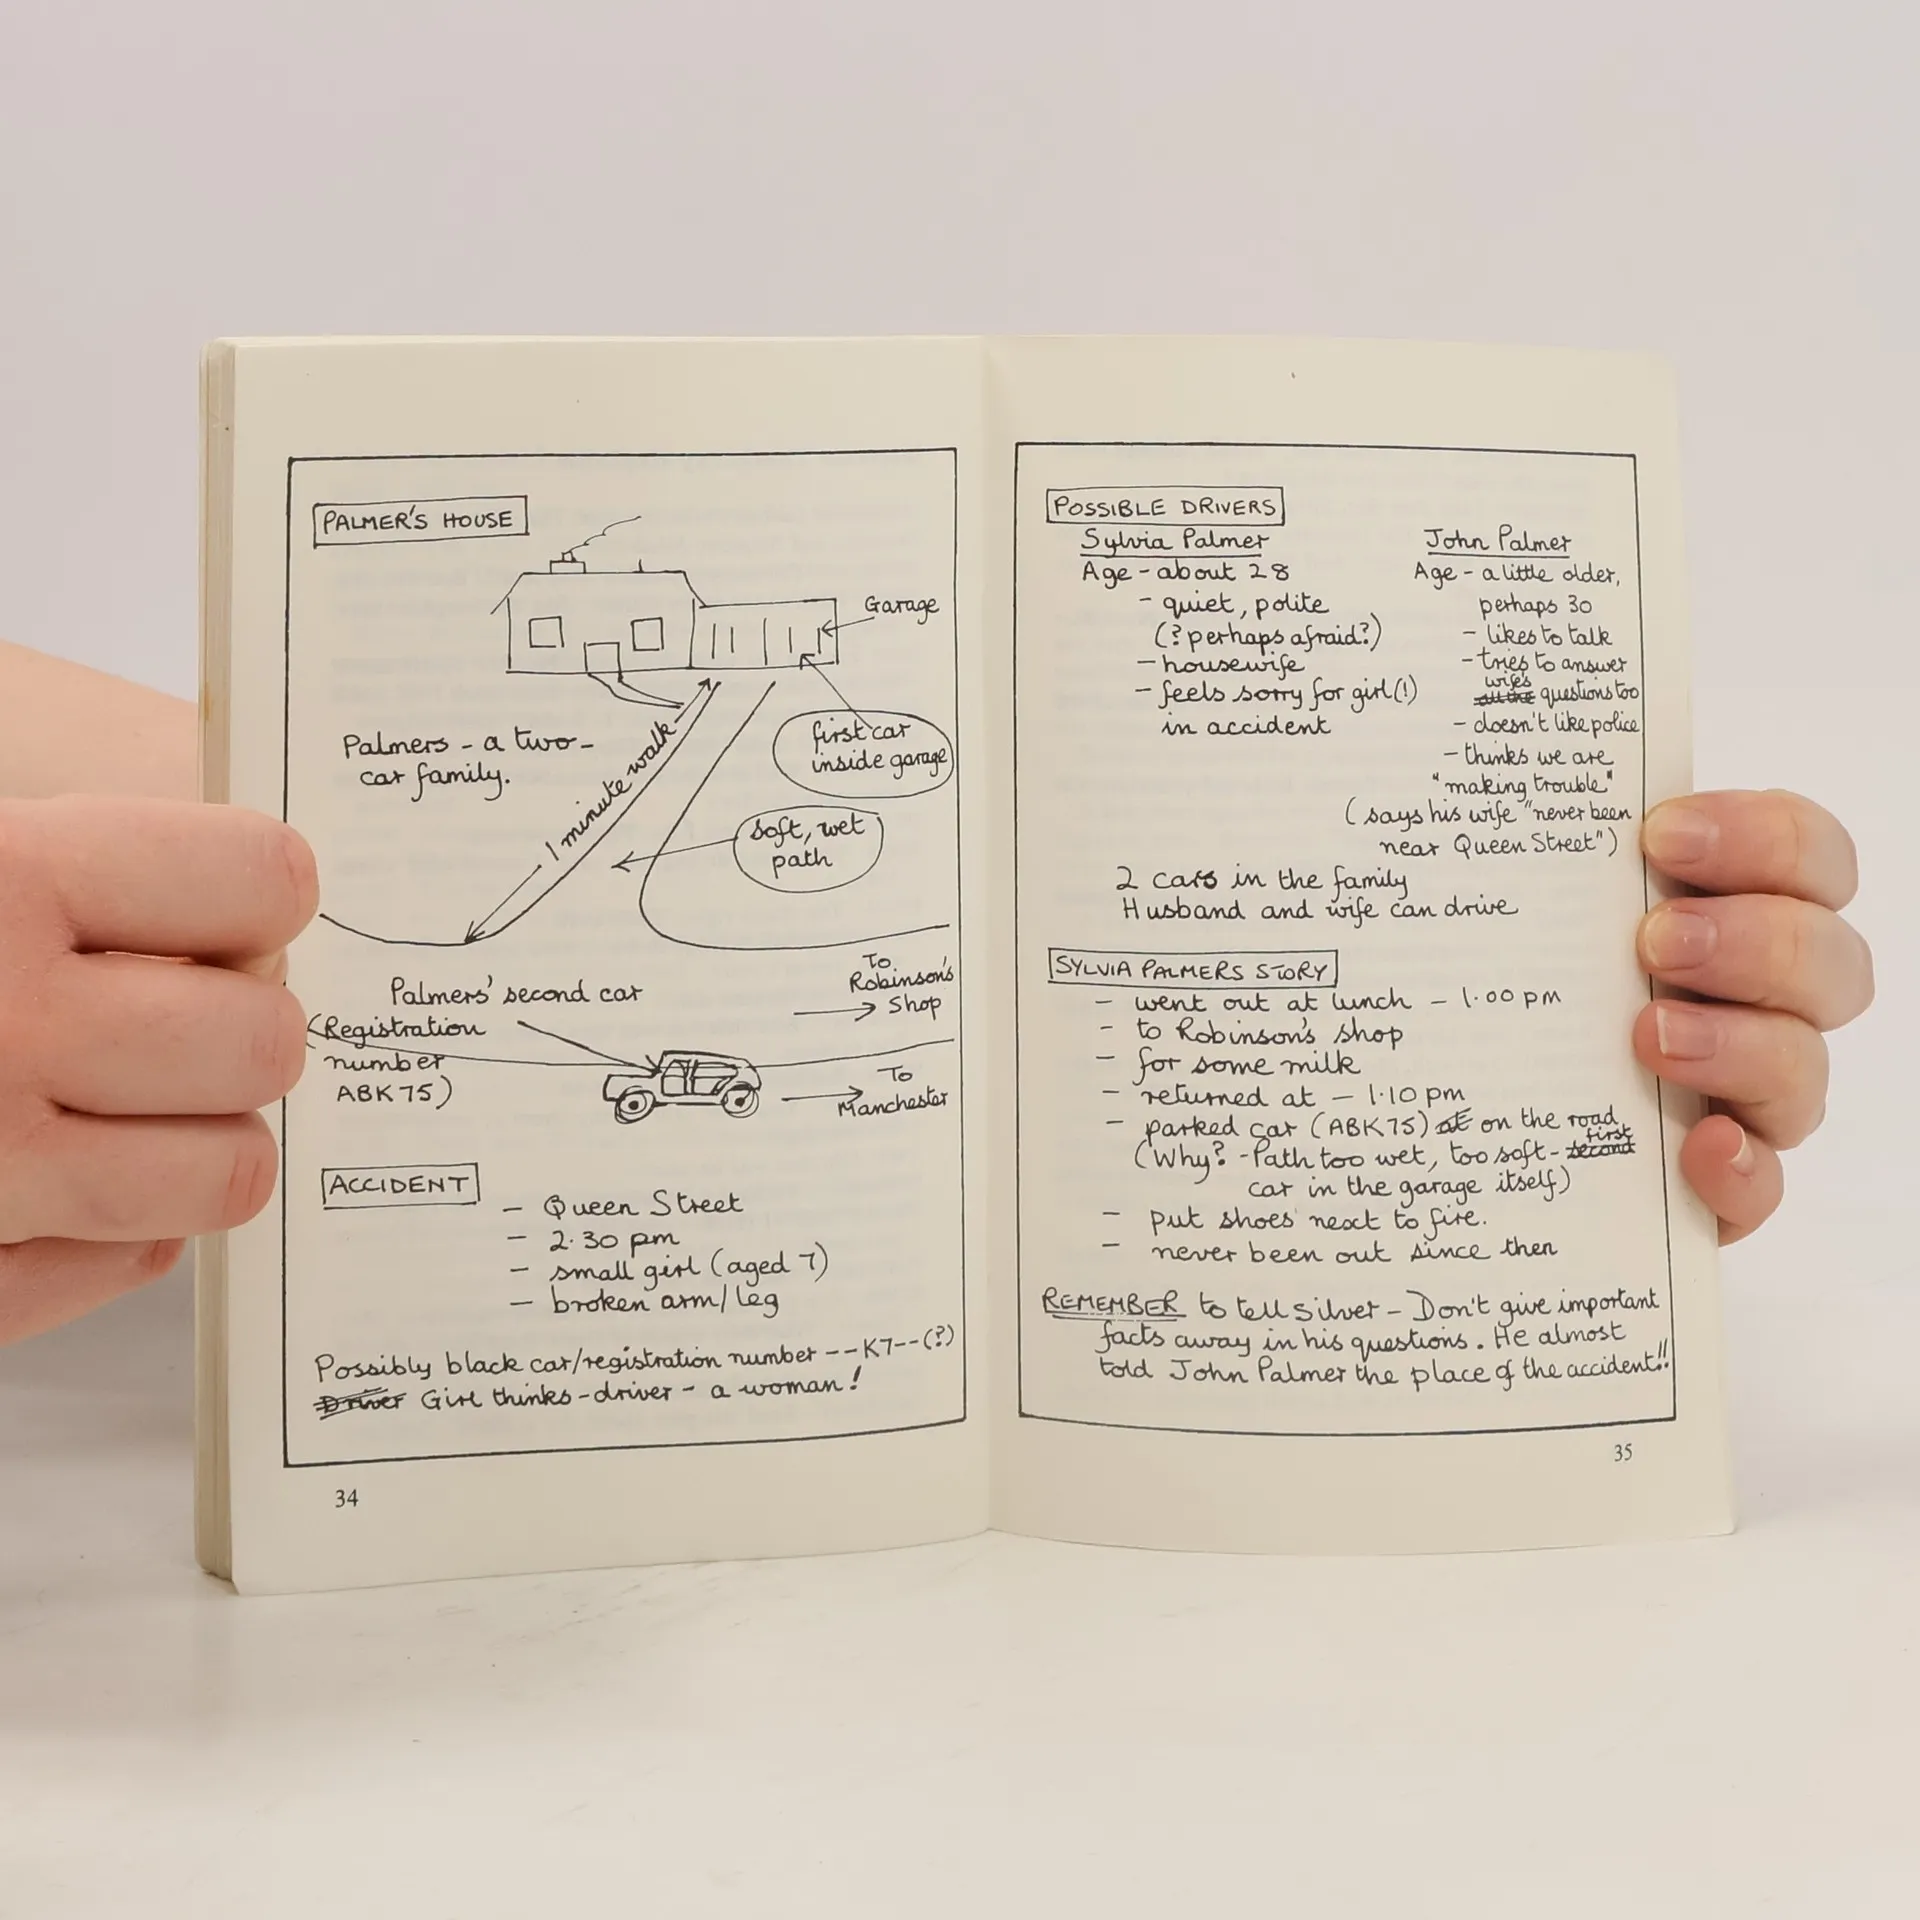 PALMER'S HOUSE
Garage
first car
inside garage
Palmers - a two-
car family.
1 minute walk
soft, wet
path
To
Robinson's
Shop
Palmers' second car
(Registration
number
ABK 75)
To
Manchester
ACCIDENT
- Queen Street
- 2.30 pm
- small girl (aged 7)
- broken arm/leg
Possibly black car/registration number --K7--(?)
Driver Girl thinks - driver - a woman!
34
POSSIBLE DRIVERS
Sylvia Palmer
Age - about 28
- quiet, polite
(? perhaps afraid?)
- housewife
- feels sorry for girl (!)
in accident
John Palmer
Age - a little older,
perhaps 30
- likes to talk
- tries to answer
wife's
all the questions too
- doesn't like police
- thinks we are
"making trouble"
(says his wife "never been
near Queen Street")
2 cars in the family
Husband and wife can drive
SYLVIA PALMERS STORY
- went out at lunch - 1.00 pm
- to Robinson's shop
- for some milk
- returned at - 1.10 pm
- parked car (ABK 75) at on the road
first
(Why? - Path too wet, too soft - second
car in the garage itself)
- put shoes next to fire.
- never been out since then
REMEMBER to tell Silver - Don't give important
facts away in his questions. He almost
told John Palmer the place of the accident!!
35